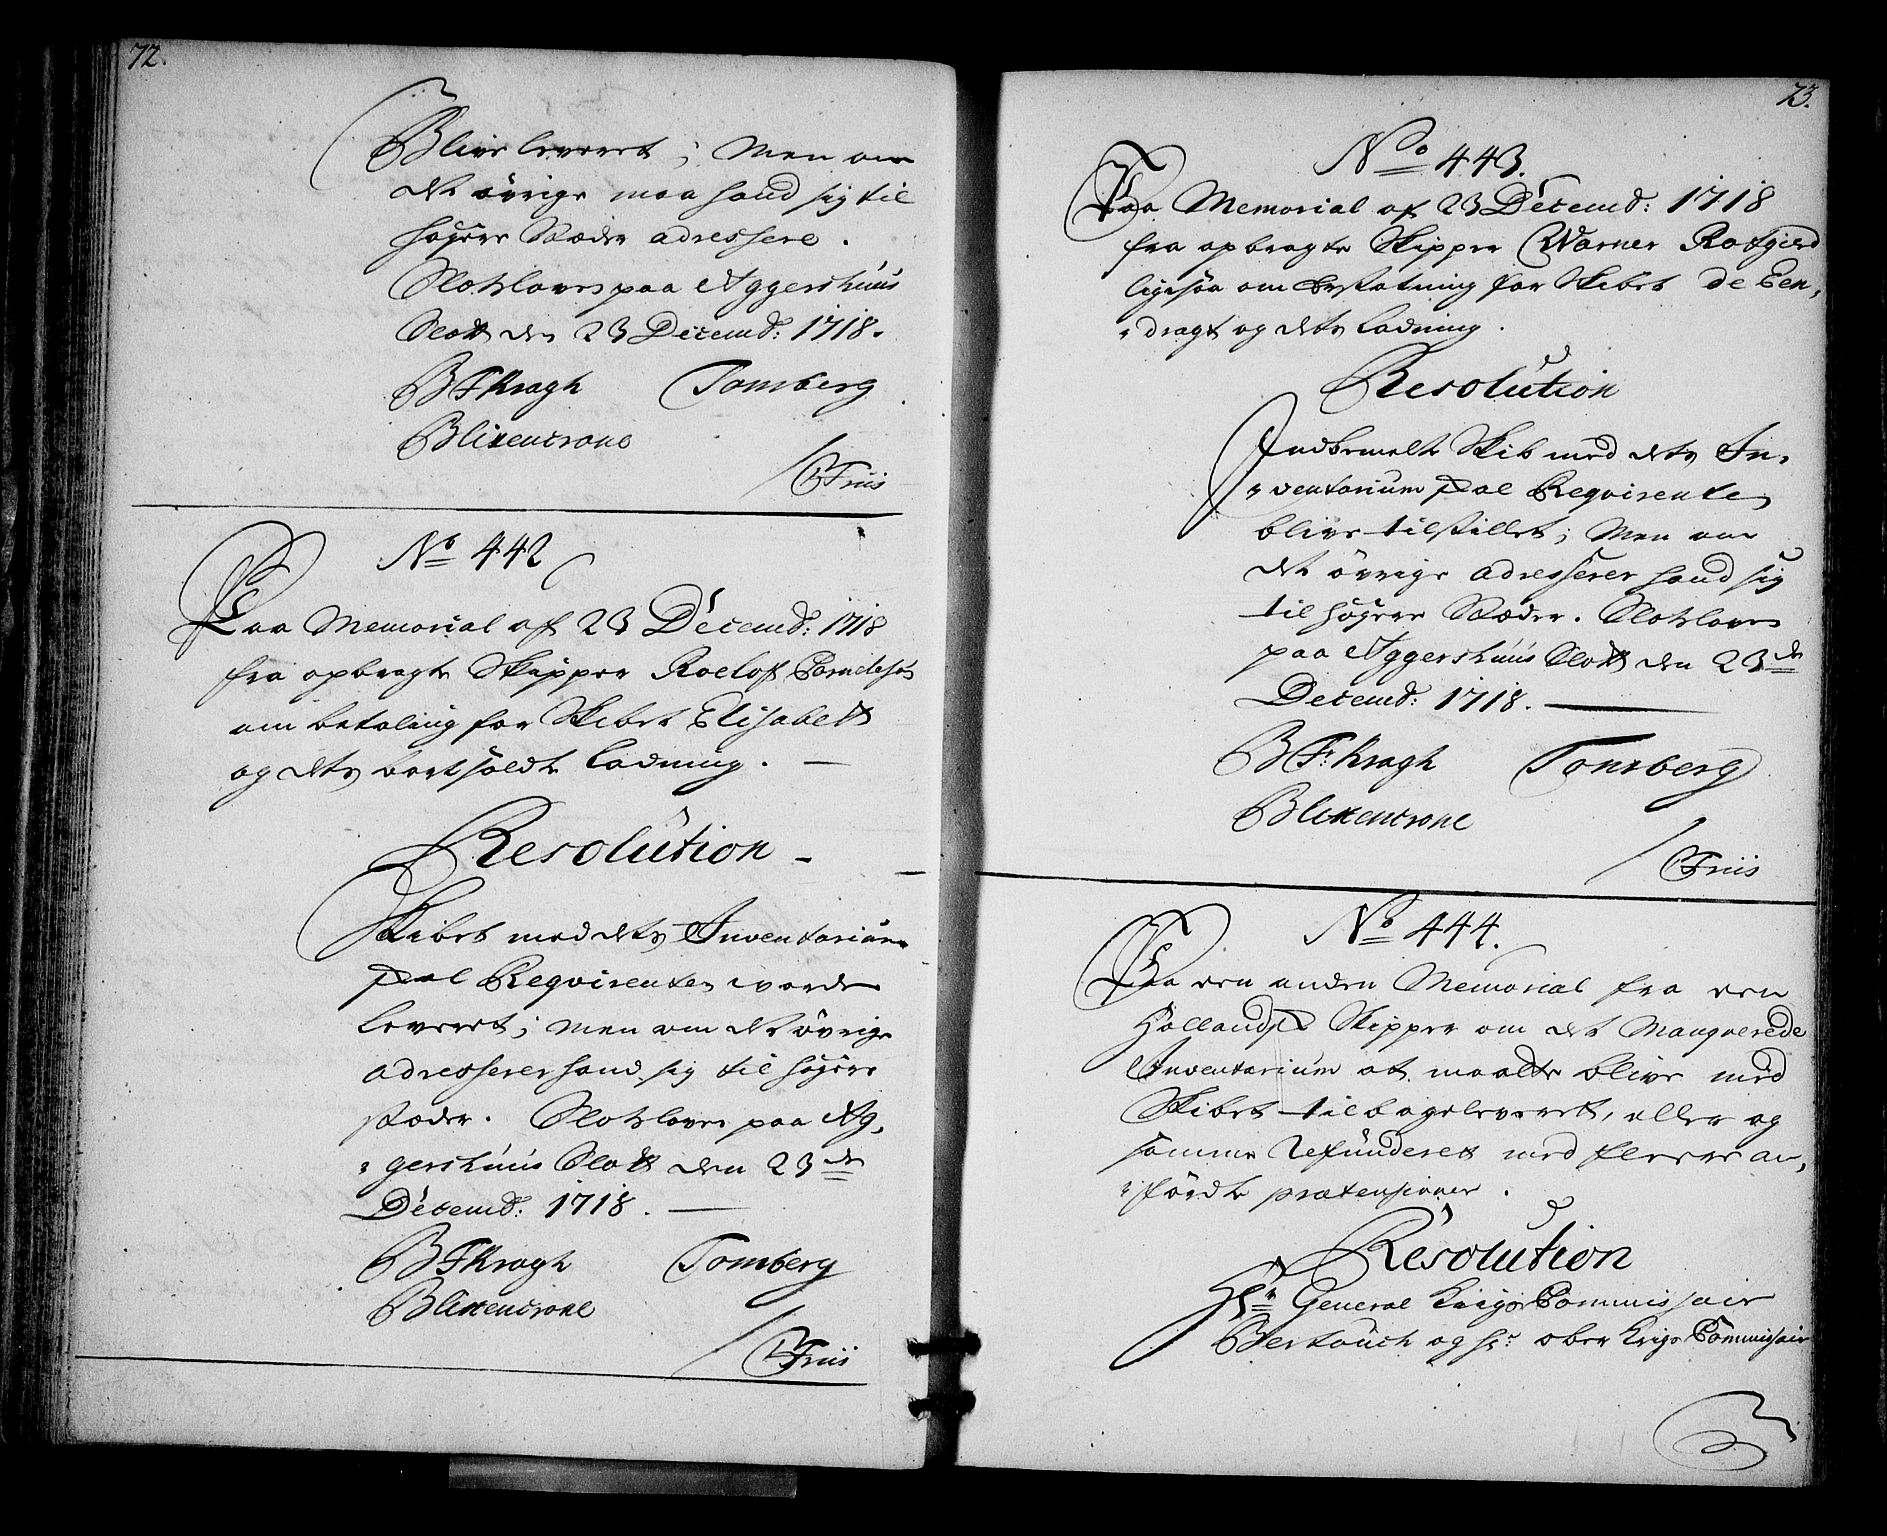 72.
Blive leveret; Men om
det övrige maa hand sig til
højere Stæder adressere.
Slotzloven paa Aggershuus
Slott den 23 Decemb: 1718.
BFKragh Tonsberg
Blixencrone
/ CFriis
No 442
Paa Memorial af 23 Decemb: 1718
fra opbragte Skipper Roelof Cornelisen
om betaling for Skibet Elisabett
og dets bortsoldte Ladning. —
Resolution
Skibet med dets Inventarium
skal Reqvirenten worde
leveret; men om det övrige
adresserer hand sig til højere
stæder. Slotzloven paa Ag,
gershuus Slott den 23de
Decemb: 1718. —
BFKragh Tonsberg
Blixencrone
/ CFriis
73.
No 443.
Paa Memorial af 23 Decemb: 1718
fra opbragte Skipper Warner
ligesaa om Erstatning for Skibet de Een,
dragt og dets Ladning.
Resolution
Indbemelte Skib med dets In,
ventarium skal Reqvirenten
blive tilstillet; Men om
det övrige adresserer hand sig
til højere Stæder. Slotzloven
paa Aggershuus Slott den 23de
Decemb: 1718. —
BF:Kragh Tonsberg
Blixencrone
/ CFriis
No 444.
Paa een anden Memorial fra een
Hollandsk Skipper om det Manqverede
Inventarium at maatte blive med
Skibet tilbageleveret, eller og
samme Refunderet med fleere an,
fördte prætensioner.
Resolution
Hr General Krigs Commissair
Berkouch og Hr: ober Krigs Commissair